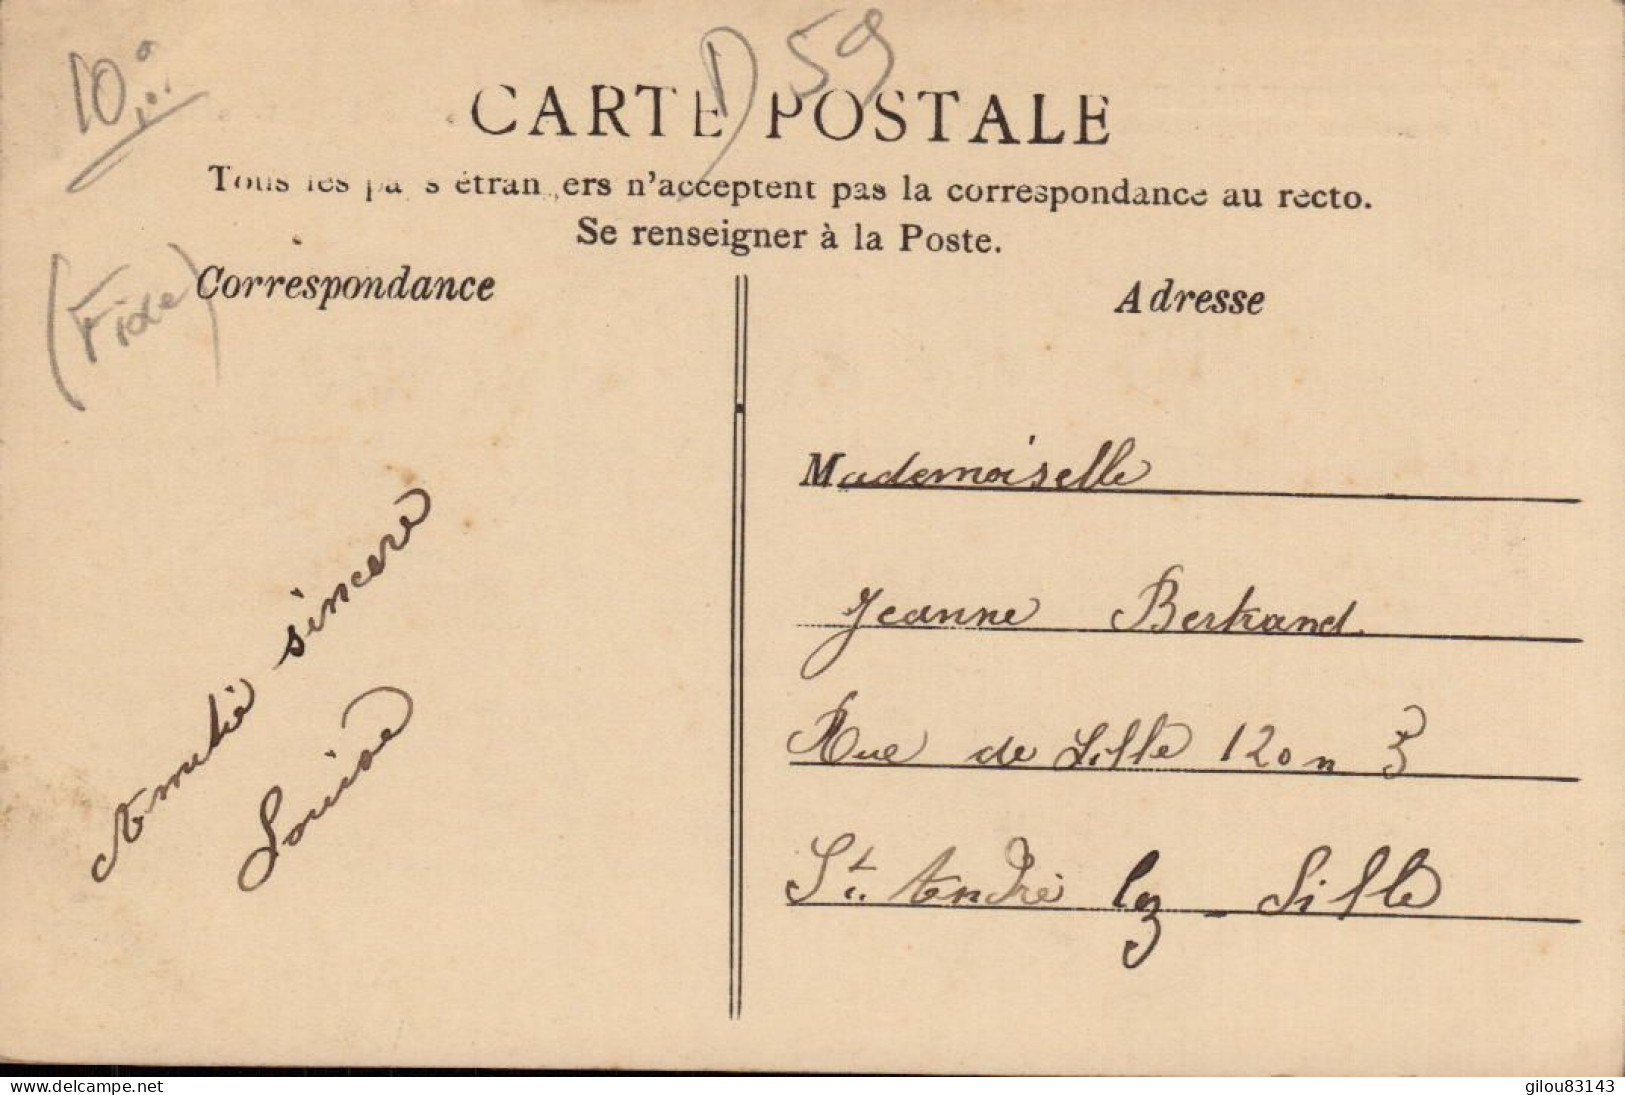 10.00
D 59
CARTE POSTALE
Tous les pays étrangers n'acceptent pas la correspondance au recto.
Se renseigner à la Poste.
(Fixe)
Correspondance
Adresse
Amitié sincère
Louise
Mademoiselle
Jeanne Bertrand
Rue de Lille 120 n 3
St. André lez - Lille
www.delcampe.net
gilou83143